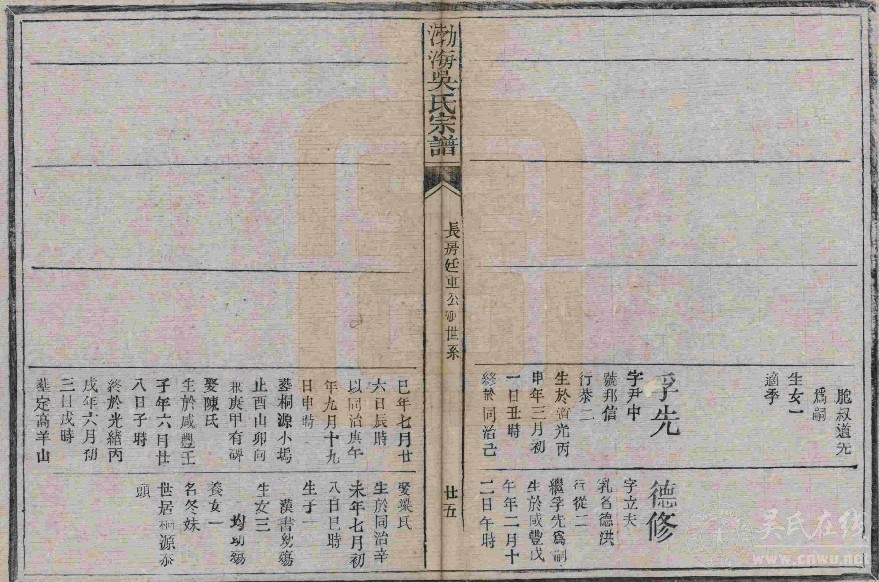 渤海吳氏宗譜
長房廷重公派世系
廿五
胞叔道先
爲嗣
生女一
適季
孚先
字尹中
號邦信
行恭二
生於道光丙
申年三月初
一日丑時
終於同治己
巳年七月廿
六日辰時
以同治庚午
年九月十九
日申時
葬桐源小塢
止酉山卯向
兼庚甲有碑
娶陳氏
生於咸豐壬
子年六月廿
八日子時
終於光緒丙
戌年六月初
三日戌時
墓定高羊山
德修
字立夫
乳名德洪
行從二
繼孚先爲嗣
生於咸豐戊
午年二月十
二日午時
娶梁氏
生於同治辛
未年七月初
八日巳時
生子一
漢書幼殤
生女三
均幼殤
養女一
名冬妹
世居桐源泰
頭
吳氏在线
www.cnwu.net